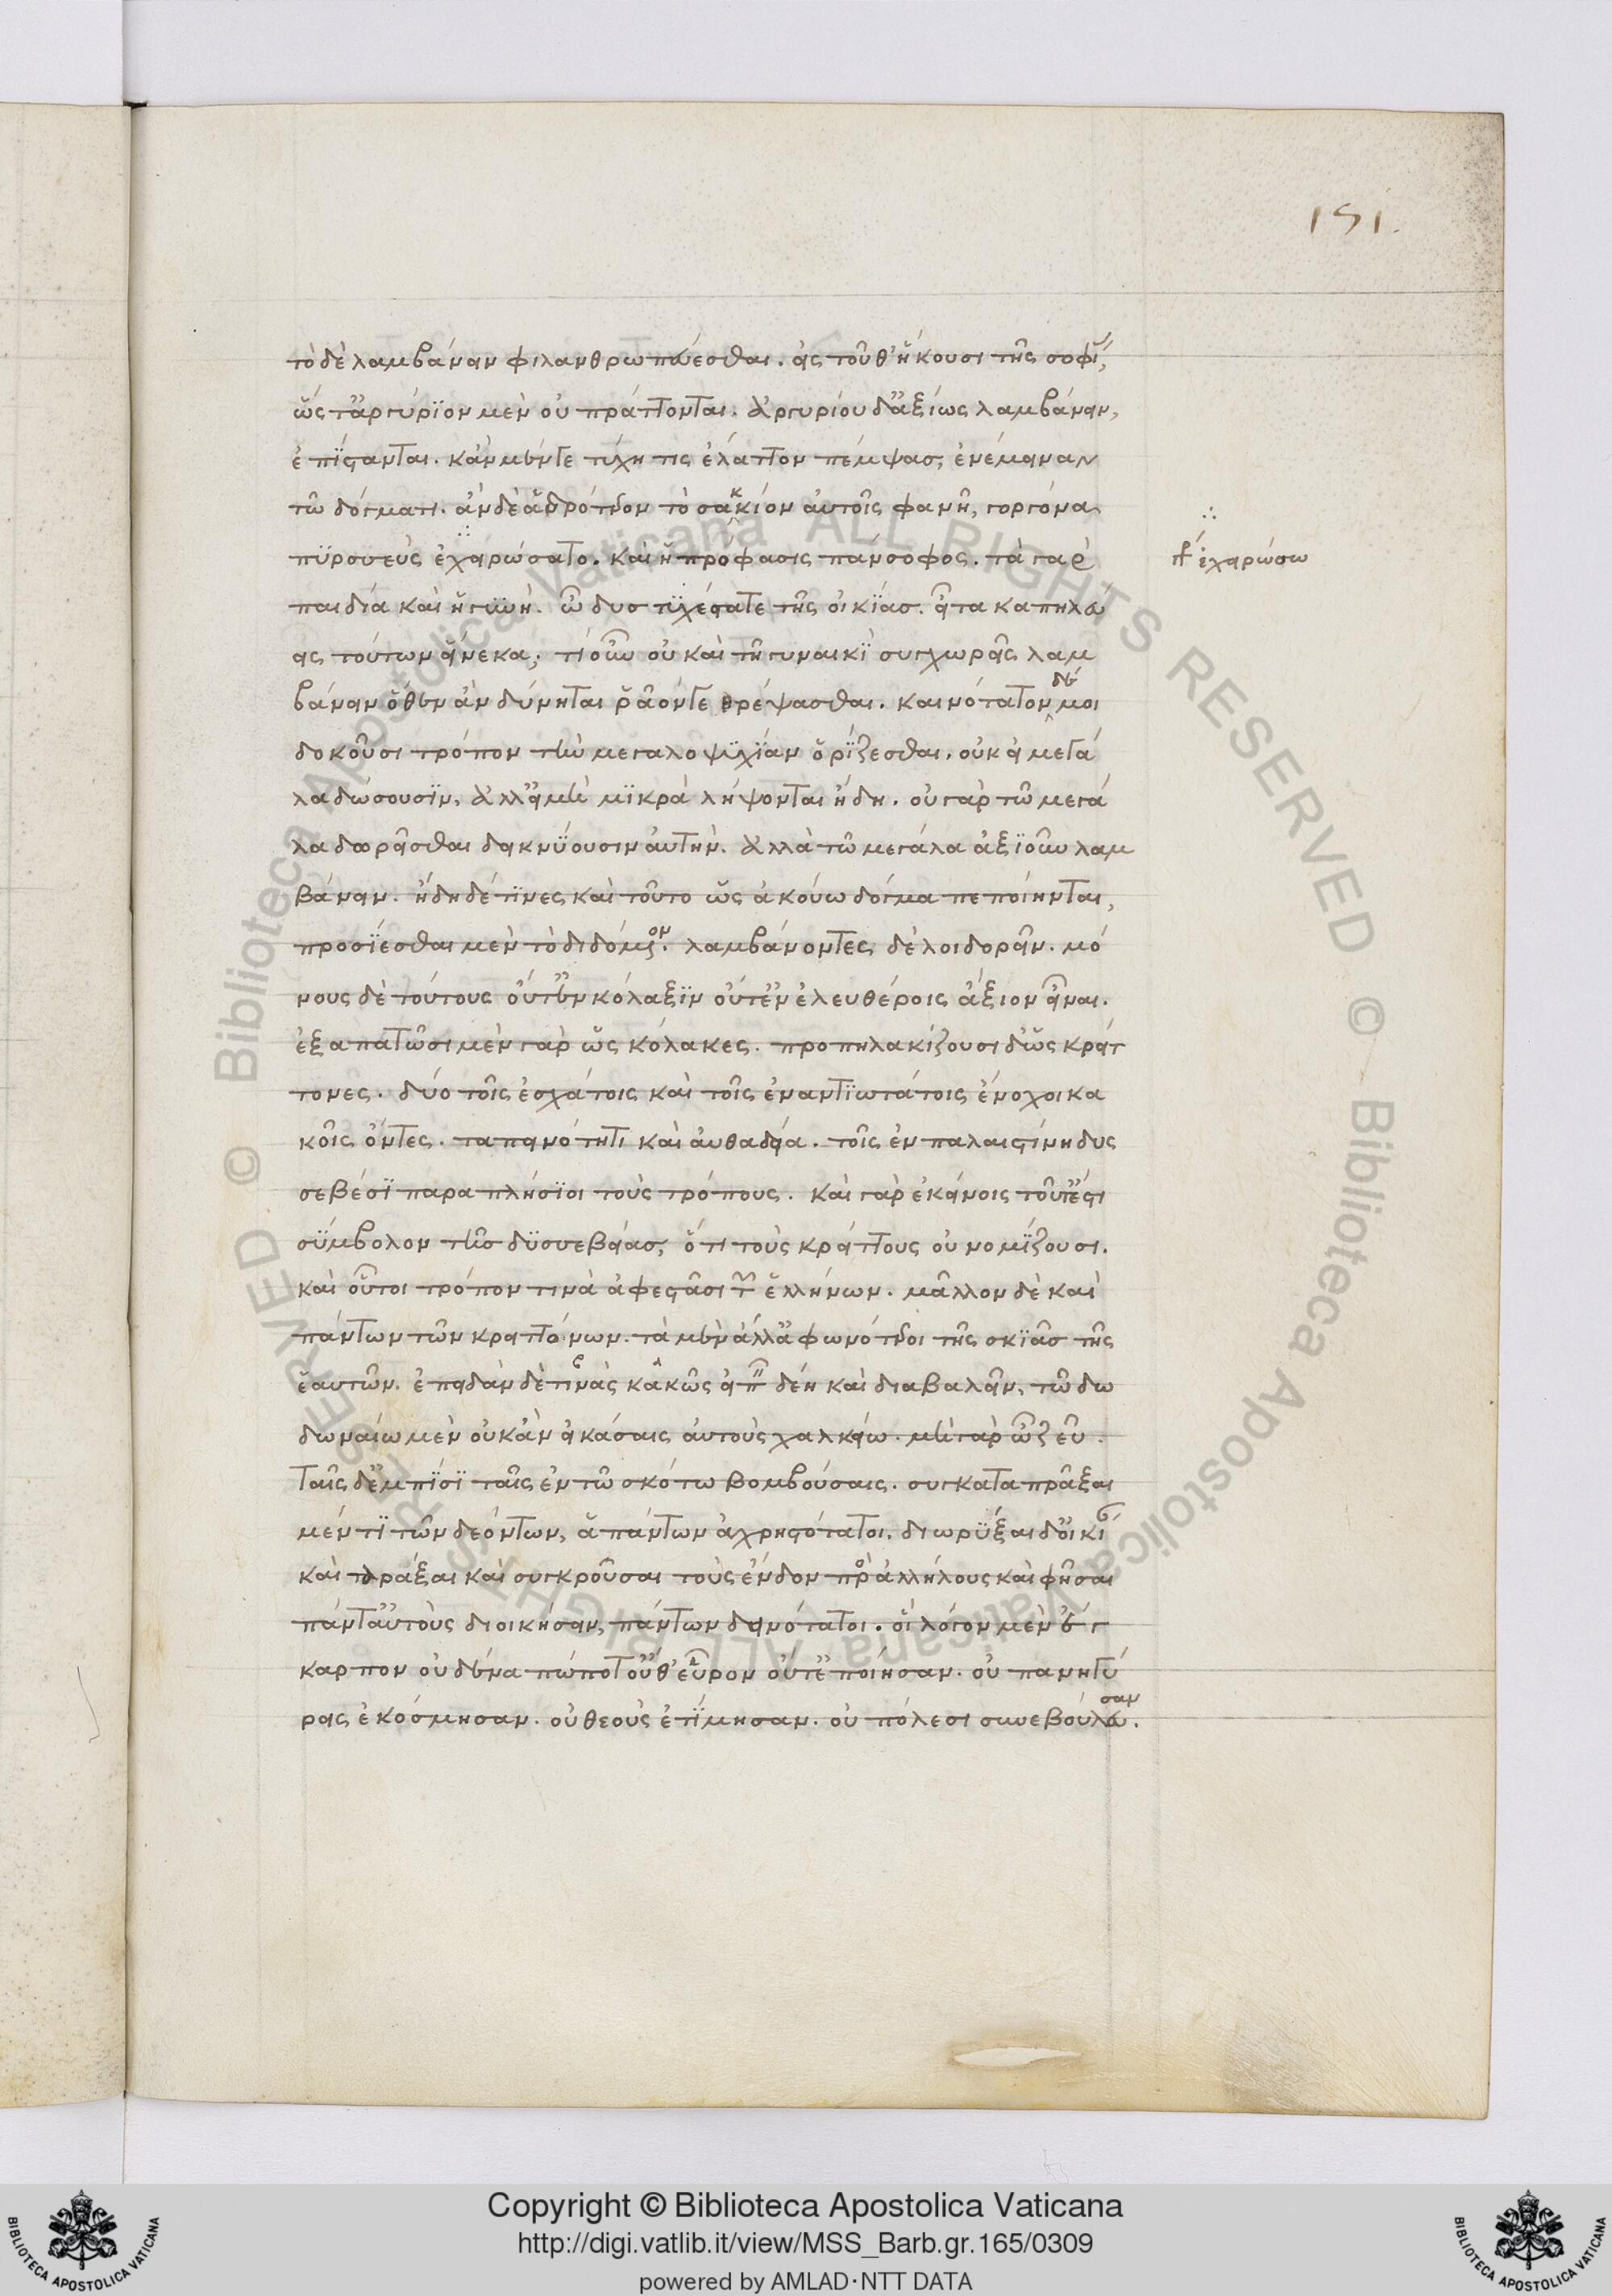 151.
τὸ δὲ λαμβάνειν φιλανθρωπεύεσθαι. εἰς τοῦθ' ἥκουσι τῆς σοφί,
ὡς τἀργύριον μὲν οὐ πράττονται. ἀργυρίου δ' ἄξι' ὡς λαμβάνειν,
ἐπίστανται. κἂν μέντε τύχη τις ἐλάττον πέμψας, ἐνέμειναν
τῶ δόγματι. ἂν δὲ ἁδρότερον τὸ σακκίον αὐτοῖς φανῆ, γοργόνα
πϋρσυεὺς ἐχειρώσατο. καὶ ἡ πρόφασις πάνσοφος. τὰ γὰρ
παιδία καὶ ἡ γυνή. ὢ δυστυχέστατε τῆς οἰκίας. εἶτα καπηλεύ
εις τούτων εἵνεκα; τί οὖν οὐ καὶ τῆ γυναικὶ συγχωρεῖς λαμ
βάνειν ὅθεν ἂν δύνηται ῥᾶον γε θρέψασθαι. καινότατον δέ μοι
δοκοῦσι τρόπον τὴν μεγαλοψυχίαν ὁρίζεσθαι. οὐκ εἰ μεγά
λα δώσουσιν, ἀλλ' εἰ μὴ μικρὰ λήψονται ἤδη. οὐ γὰρ τῶ μεγά
λα δωρεῖσθαι δεικνύουσιν αὐτήν. ἀλλὰ τῶ μεγάλα ἀξιοῦν λαμ
βάνειν. ἤδη δέ τινες καὶ τοῦτο ὡς ἀκούω δόγμα πεποίηνται,
προσίεσθαι μὲν τὸ διδόμενον. λαμβάνοντες δὲ λοιδορεῖν. μό
νους δὲ τούτους οὔτ' ἐν κόλαξιν οὔτ' ἐν ἐλευθέροις ἄξιον εἶναι.
ἐξαπατῶσι μὲν γὰρ ὡς κόλακες. προπηλακίζουσι δ' ὡς κρείτ
τονες. δύο τοῖς ἐσχάτοις καὶ τοῖς ἐναντιωτάτοις ἔνοχοι κα
κοῖς ὄντες. ταπεινότητι καὶ αὐθαδεία. τοῖς ἐν παλαιστίνη δυς
σεβέσι παραπλήσιοι τοὺς τρόπους. καὶ γὰρ ἐκείνοις τοῦτ' ἔστι
σύμβολον τῆς δυσσεβείας, ὅτι τοὺς κρείττους οὐ νομίζουσι.
καὶ οὗτοι τρόπον τινὰ ἀφεστᾶσι τῶν ἑλλήνων. μᾶλλον δὲ καὶ
πάντων τῶν κρειττόνων. τὰ μὲν ἄλλα ἀφωνότεροι τῆς σκιᾶς τῆς
ἑαυτῶν. ἐπειδὰν δὲ τινὰς κακῶς εἰπεῖν δέη καὶ διαβαλεῖν, τῶ δω
δωναίω μὲν οὐκ ἂν εἰκάσαις αὐτοὺς χαλκείω. μὴ γὰρ ὦ ζεῦ.
ταῖς δ' ἐμπίσι ταῖς ἐν τῶ σκότω βομβούσαις. συγκαταπρᾶξαι
μέν τι τῶν δεόντων, ἁπάντων ἀχρηστότατοι. διωρύξαι δ' οἰκί
καὶ ταράξαι καὶ συγκροῦσαι τοὺς ἔνδον πρὸς ἀλλήλους καὶ φῆσαι
πάντ' αὐτοὺς διοικήσειν, πάντων δεινότατοι. οἳ λόγον μὲν ἔγ
καρπον οὐδένα πώποτ' οὔθ' εὗρον οὔτ' ἐποίησαν. οὐ πανηγύ
ρεις ἐκόσμησαν. οὐ θεοὺς ἐτίμησαν. οὐ πόλεσι συνεβούλευσαν.
ἐχειρώσω
Copyright © Biblioteca Apostolica Vaticana
http://digi.vatlib.it/view/MSS_Barb.gr.165/0309
powered by AMLAD·NTT DATA